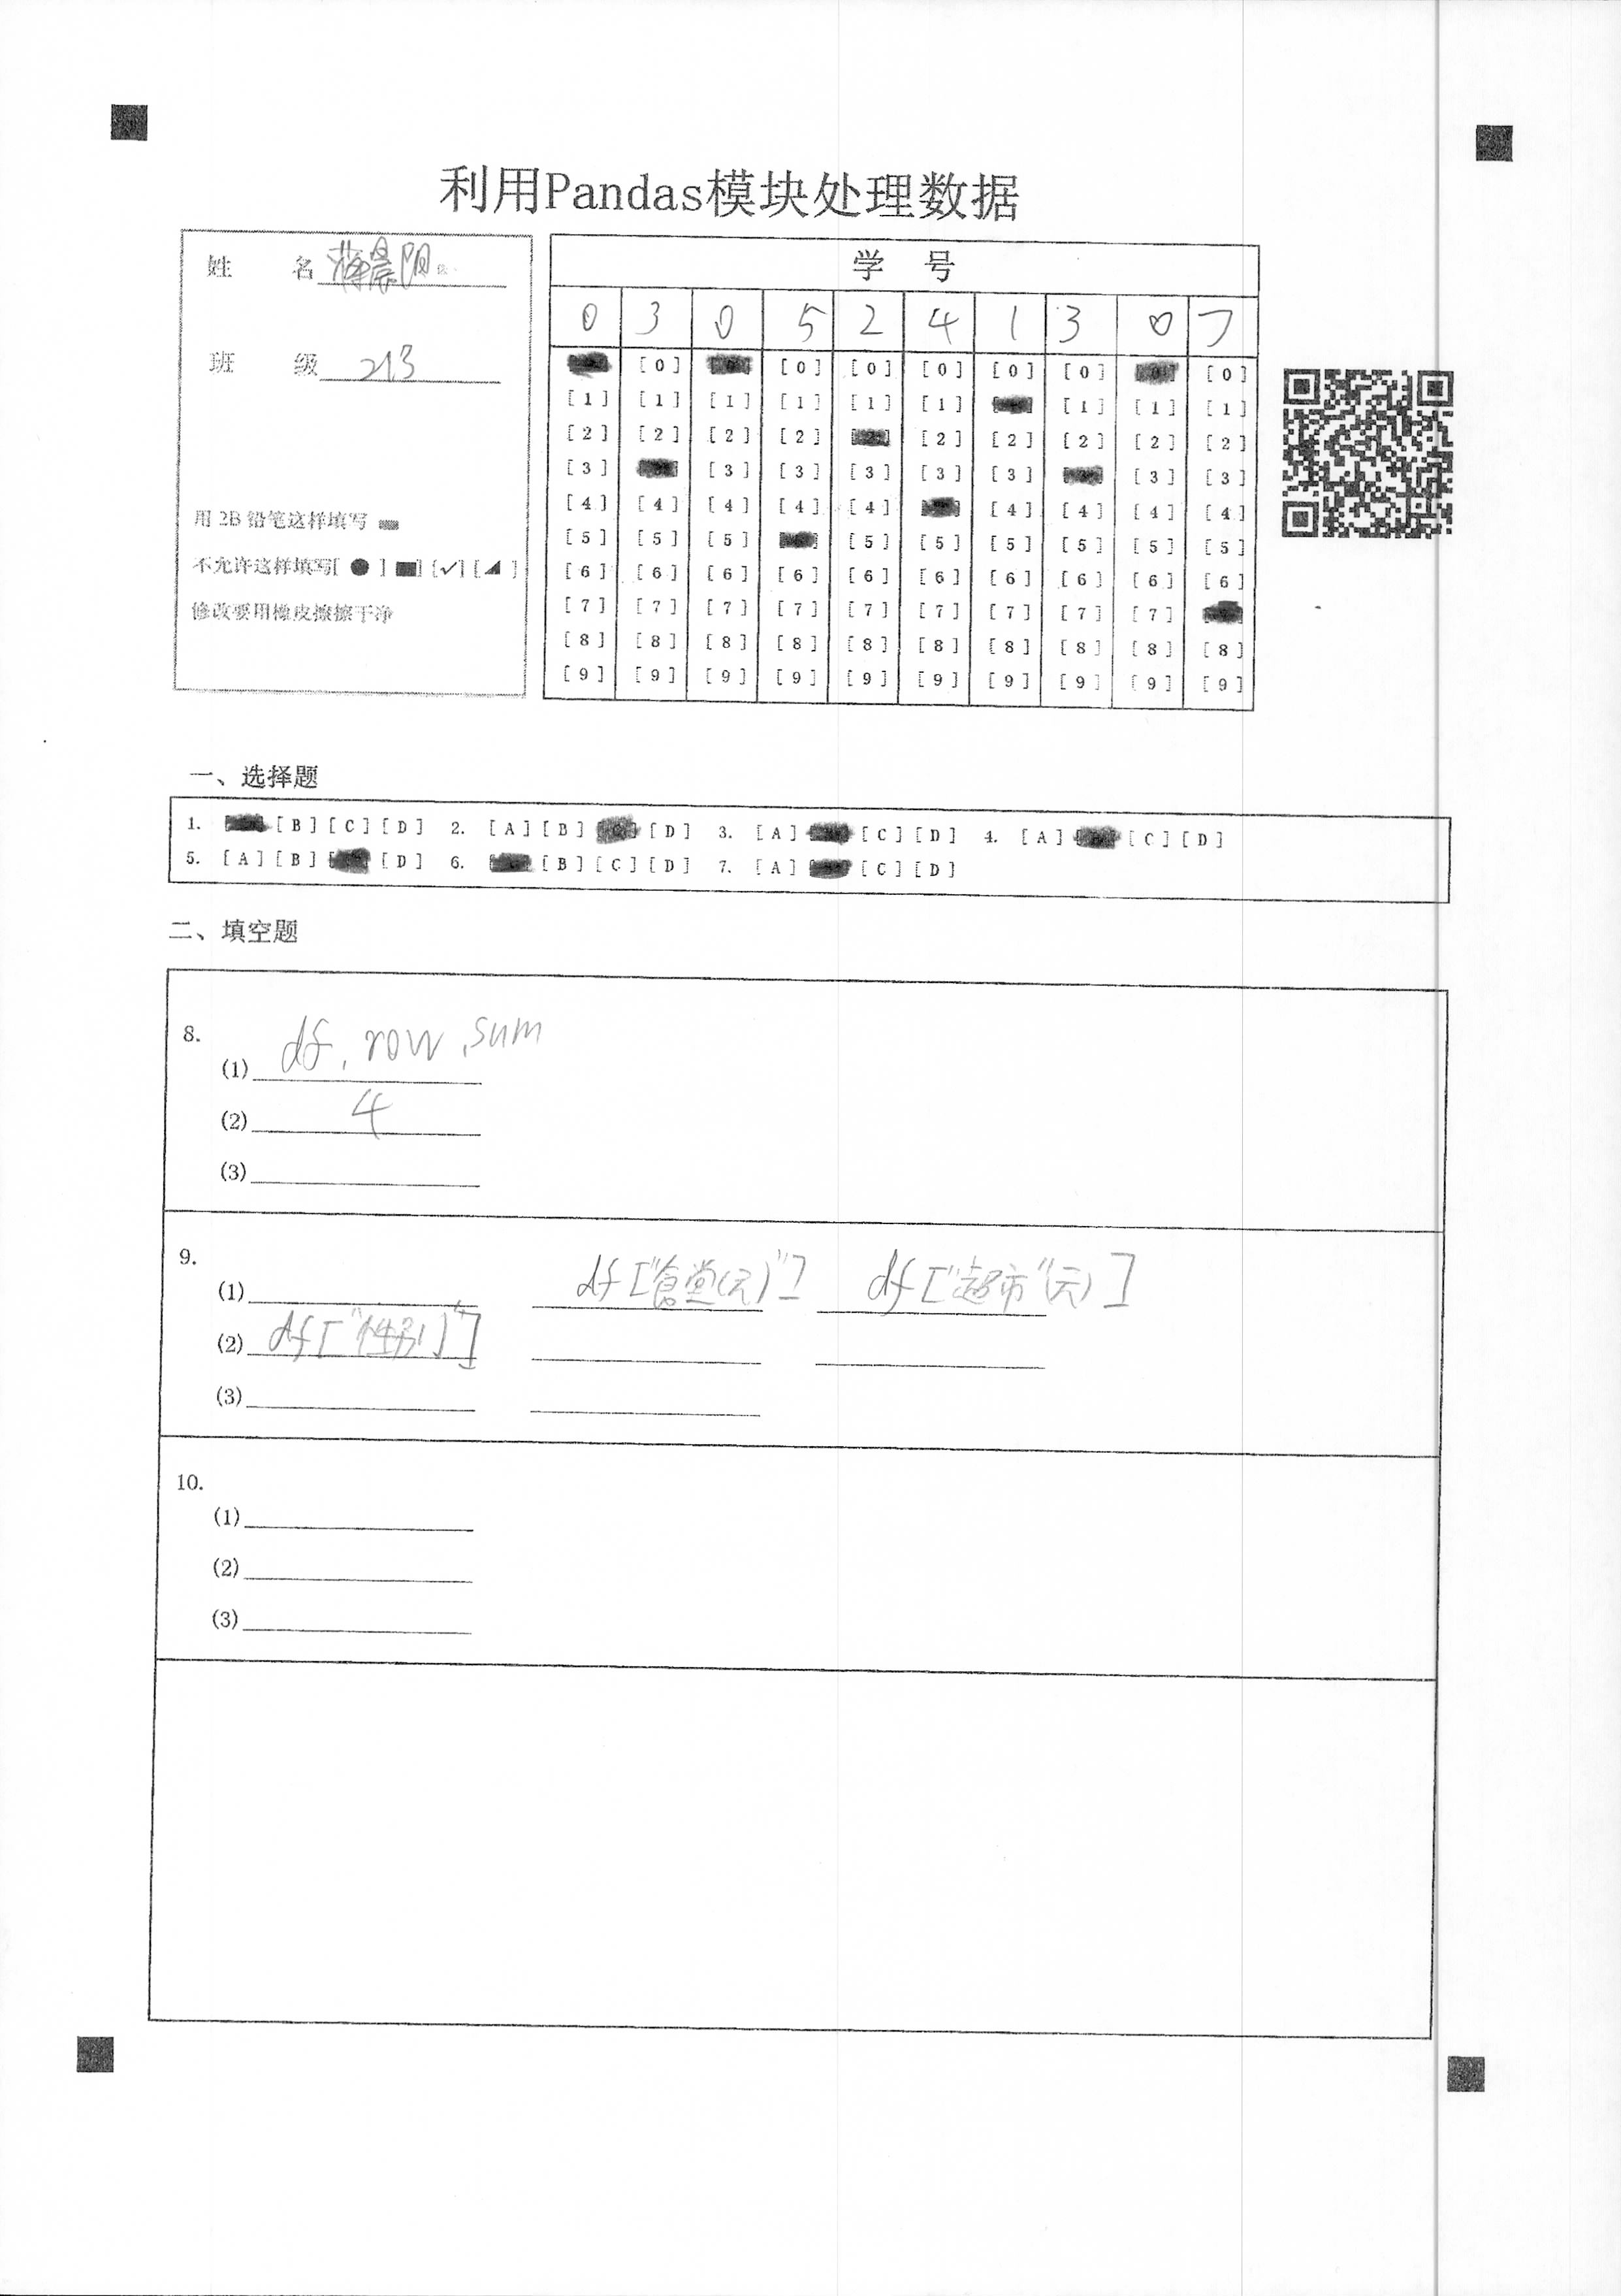 利用Pandas模块处理数据
姓 名 蒋晨阳
班 级 213
用 2B 铅笔这样填写
不允许这样填写[ ● ] [■] [✓] [◢ ]
修改要用橡皮擦擦干净
学 号
0 3 0 5 2 4 1 3 0 7
[0] [0] [0] [0] [0] [0] [0]
[1] [1] [1] [1] [1] [1] [1] [1] [1]
[2] [2] [2] [2] [2] [2] [2] [2] [2]
[3] [3] [3] [3] [3] [3] [3] [3]
[4] [4] [4] [4] [4] [4] [4] [4] [4]
[5] [5] [5] [5] [5] [5] [5] [5] [5]
[6] [6] [6] [6] [6] [6] [6] [6] [6] [6]
[7] [7] [7] [7] [7] [7] [7] [7] [7]
[8] [8] [8] [8] [8] [8] [8] [8] [8] [8]
[9] [9] [9] [9] [9] [9] [9] [9] [9] [9]
一、选择题
1. [B] [C] [D] 2. [A] [B] [D] 3. [A] [C] [D] 4. [A] [C] [D]
5. [A] [B] [D] 6. [B] [C] [D] 7. [A] [C] [D]
二、填空题
8.
(1) df. row .sum
(2) 4
(3)
9.
(1) df["食堂(元)"] df["超市"(元)]
(2) df["性别"]
(3)
10.
(1)
(2)
(3)